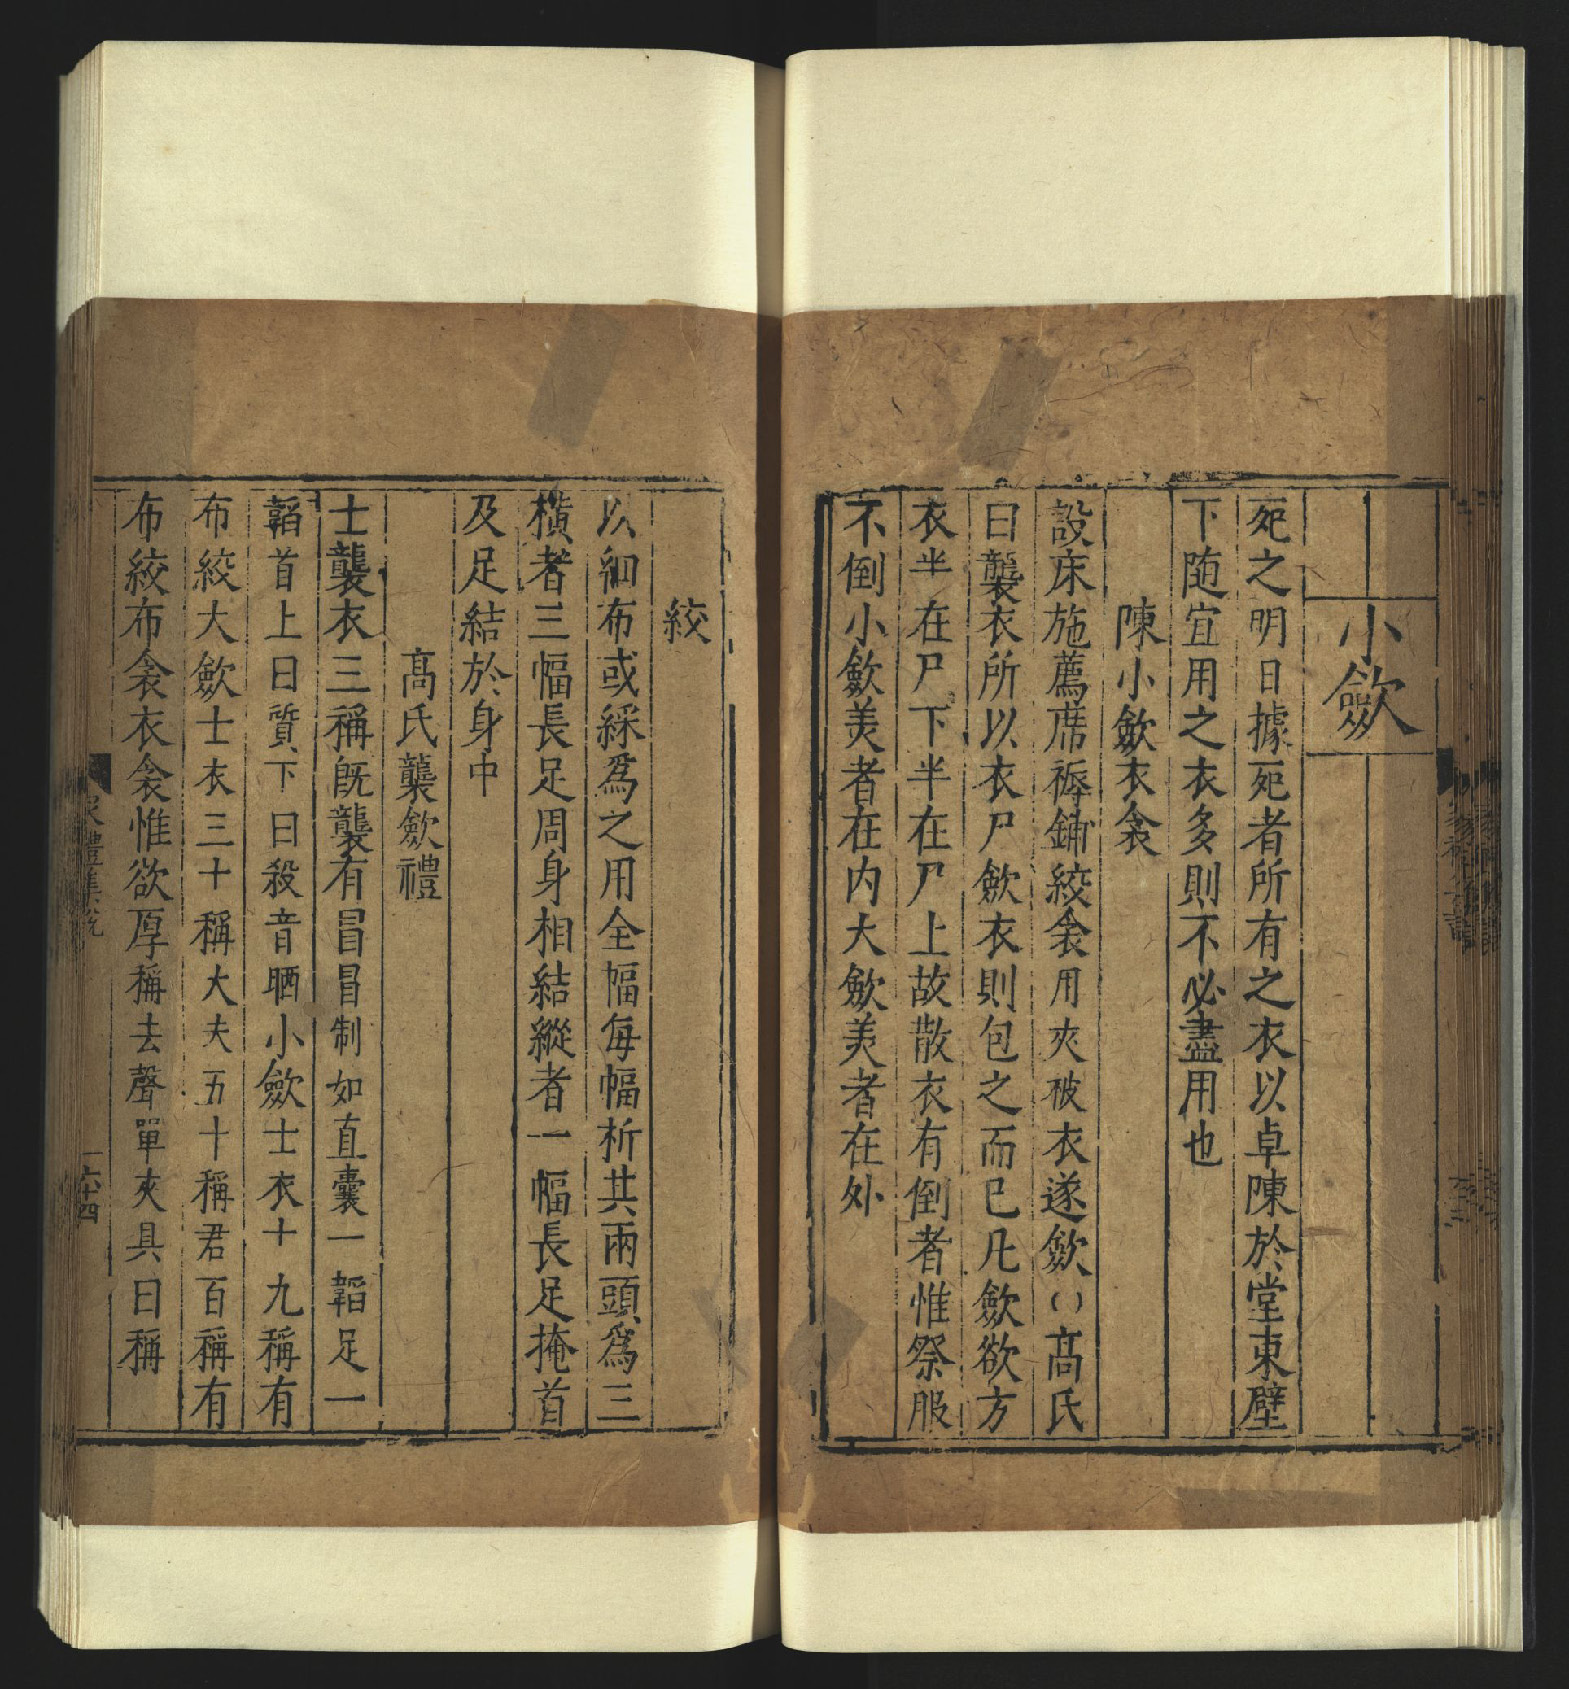 小斂
死之明日據死者所有之衣以卓陳於堂東壁
下随宜用之衣多則不必盡用也
陳小斂衣衾
設床施薦席褥鋪絞衾用夾被衣遂斂()髙氏
曰襲衣所以衣尸斂衣則包之而已凡斂欲方
衣半在尸下半在尸上故散衣有倒者惟祭服
不倒小斂美者在内大斂美者在外
絞
以細布或綵為之用全幅每幅析其兩頭為三
橫者三幅長足周身相結縱者一幅長足掩首
及足結於身中
髙氏襲斂禮
士襲衣三稱旣襲有冒冒制如直囊一韜足一
韜首上曰質下曰殺音晒小斂士衣十九稱有
布絞大斂士衣三十稱大夫五十稱君百稱有
布絞布衾衣衾惟欲厚稱去聲單夾具曰稱
家禮集說
六十四